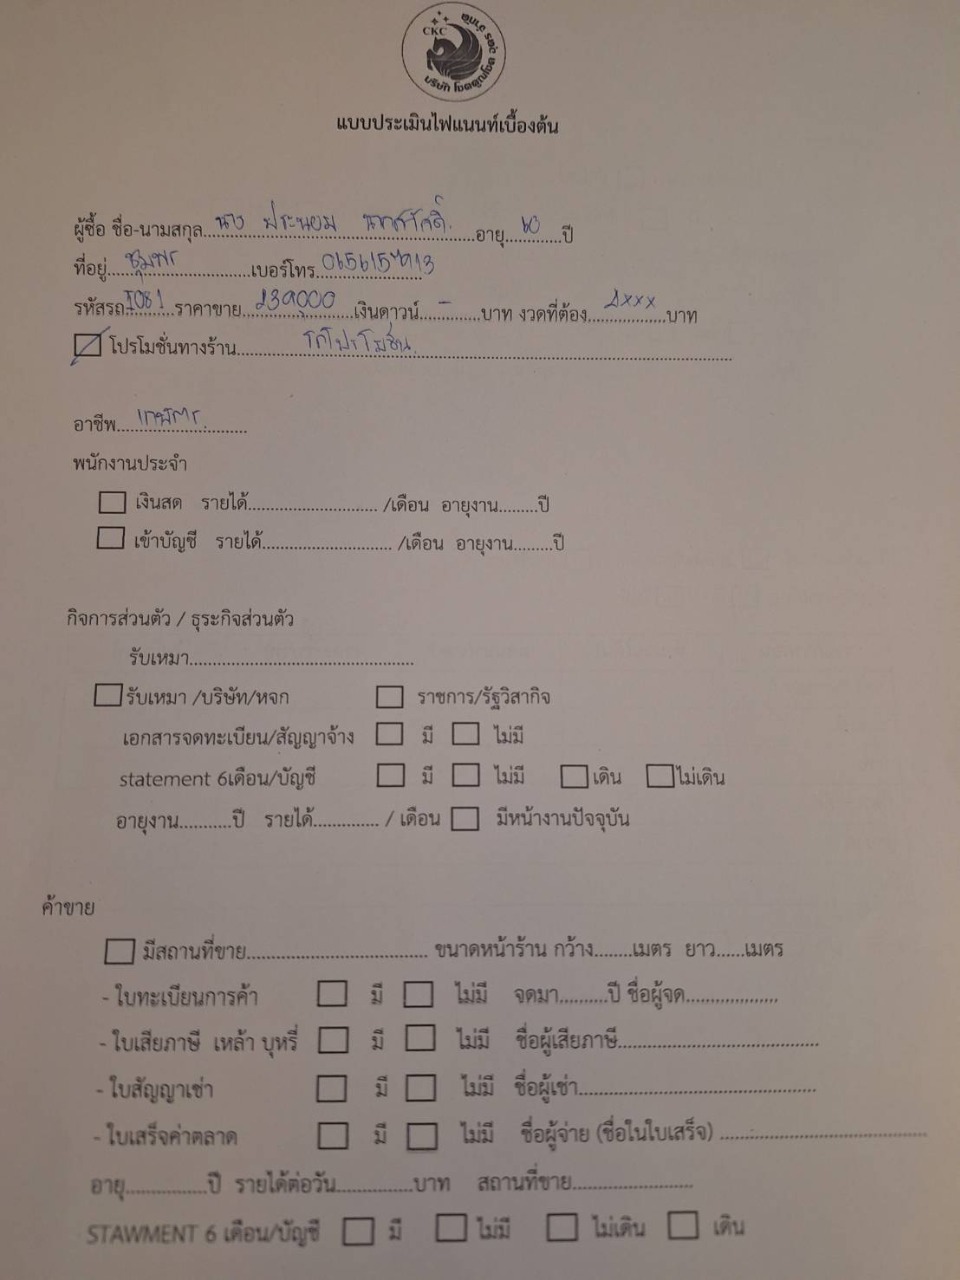 CKC
บริษัท โชคคูณโชค คาร์ จำกัด
แบบประเมินไฟแนนท์เบื้องต้น
ผู้ซื้อ ชื่อ-นามสกุล นาง ประนอม อายุ 60 ปี
ที่อยู่ ชุมพร เบอร์โทร
รหัสรถ T081 ราคาขาย 239,000 เงินดาวน์ - บาท งวดที่ต้อง xxx บาท
โปรโมชั่นทางร้าน โปรโมชั่น
อาชีพ เกษตร
พนักงานประจำ
เงินสด รายได้............................. /เดือน อายุงาน.........ปี
เข้าบัญชี รายได้............................. /เดือน อายุงาน.........ปี
กิจการส่วนตัว / ธุระกิจส่วนตัว
รับเหมา.............................................
รับเหมา /บริษัท/หจก ราชการ/รัฐวิสากิจ
เอกสารจดทะเบียน/สัญญาจ้าง มี ไม่มี
statement 6เดือน/บัญชี มี ไม่มี เดิน ไม่เดิน
อายุงาน...........ปี รายได้.............. / เดือน มีหน้างานปัจจุบัน
ค้าขาย
มีสถานที่ขาย.................................... ขนาดหน้าร้าน กว้าง........เมตร ยาว......เมตร
- ใบทะเบียนการค้า มี ไม่มี จดมา..........ปี ชื่อผู้จด...................
- ใบเสียภาษี เหล้า บุหรี่ มี ไม่มี ชื่อผู้เสียภาษี........................................
- ใบสัญญาเช่า มี ไม่มี ชื่อผู้เช่า...............................................
- ใบเสร็จค่าตลาด มี ไม่มี ชื่อผู้จ่าย (ชื่อในใบเสร็จ) ..........................................
อายุ.................ปี รายได้ต่อวัน................บาท สถานที่ขาย.........................
STAWMENT 6 เดือน/บัญชี มี ไม่มี ไม่เดิน เดิน